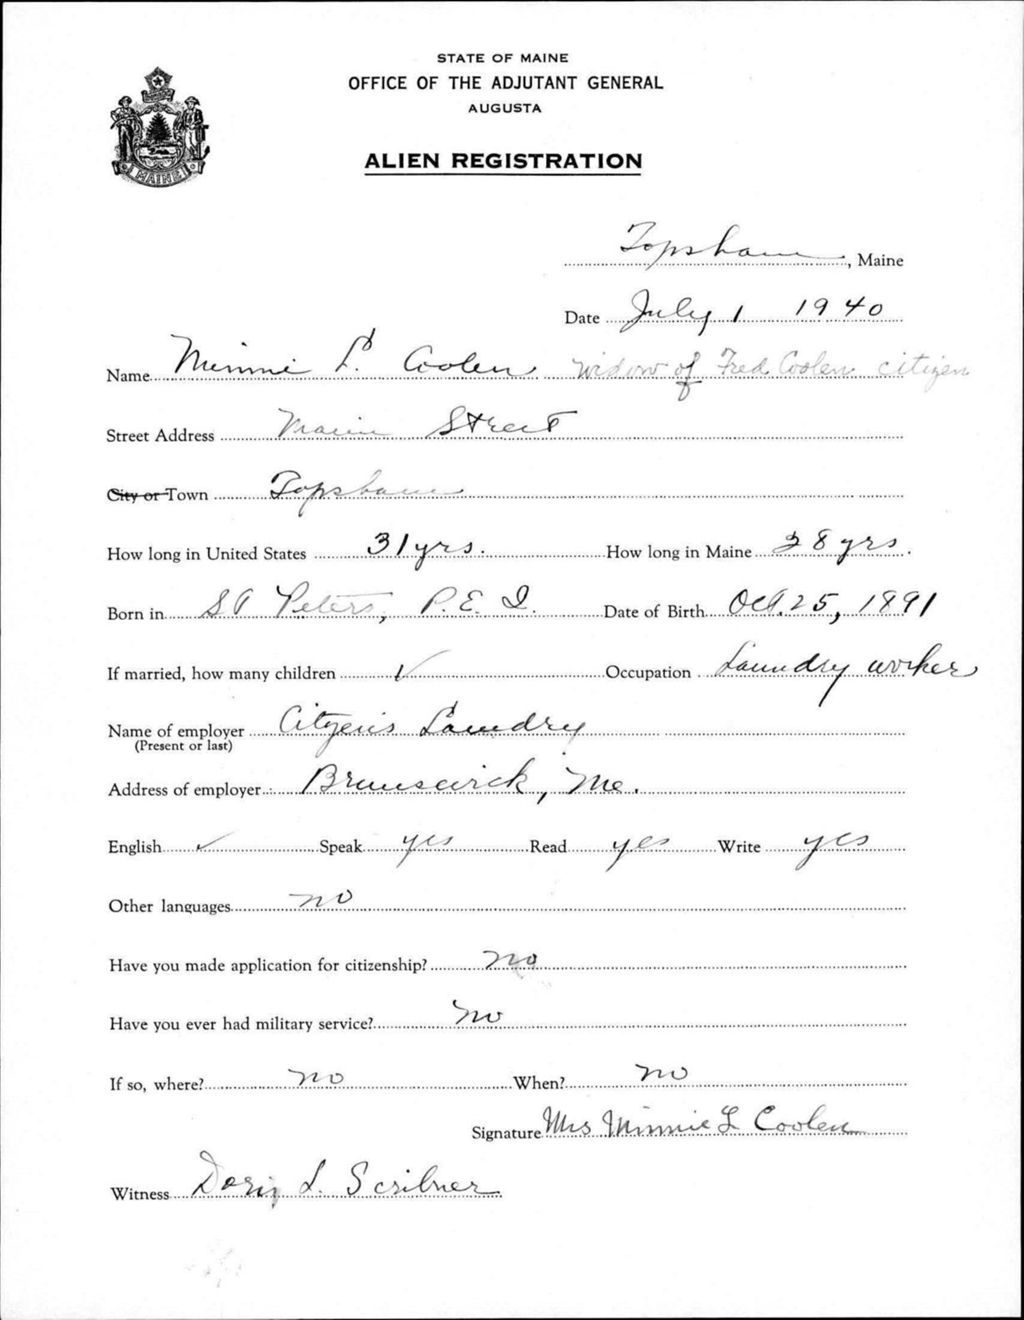 STATE OF MAINE
OFFICE OF THE ADJUTANT GENERAL
AUGUSTA
ALIEN REGISTRATION
MAINE
Topsham, Maine
Date July 1 1940
Name Minnie L. Coolen widow of Fred Coolen citizen
Street Address Main Street
City or Town Topsham
How long in United States 31 yrs. How long in Maine 28 yrs.
Born in St Peters, P.E.I. Date of Birth Oct. 25, 1891
If married, how many children ✓ Occupation Laundry worker
Name of employer Citizens Laundry
(Present or last)
Address of employer Brunswick, Me.
English ✓ Speak yes Read yes Write yes
Other languages no
Have you made application for citizenship? no
Have you ever had military service? no
If so, where? no When? no
Signature Mrs Minnie L Coolen
Witness Doris L. Scribner